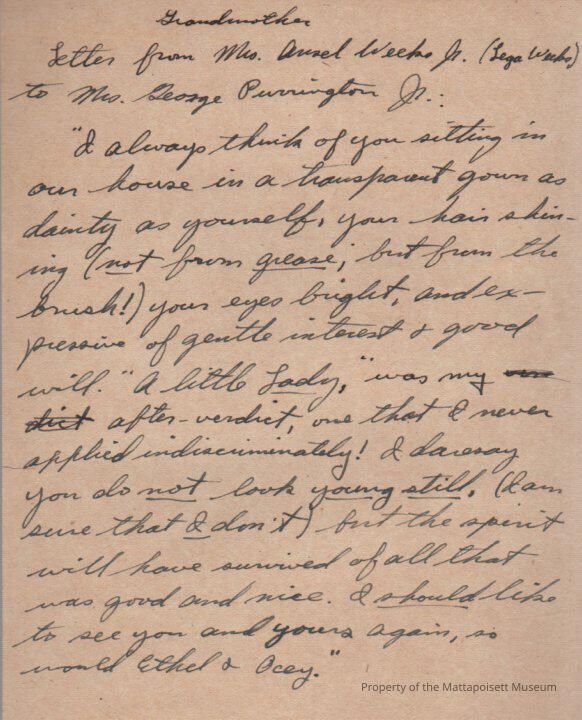 Grandmother
Letter from Mrs. Ansel Weeks Jr. (Leza Weeks)
to Mrs. George Purrington Jr.:
"I always think of you sitting in
our house in a transparent gown as
dainty as yourself, your hair shin-
ing (not from grease; but from the
brush!) your eyes bright, and ex-
pressive of gentle interest & good
will." A little Lady," was my
after-verdict, one that I never
applied indiscriminately! I daresay
you do not look young still, (I am
sure that I don't) but the spirit
will have survived of all that
was good and nice. I should like
to see you and yours again, so
would Ethel & Ocey."
Property of the Mattapoisett Museum